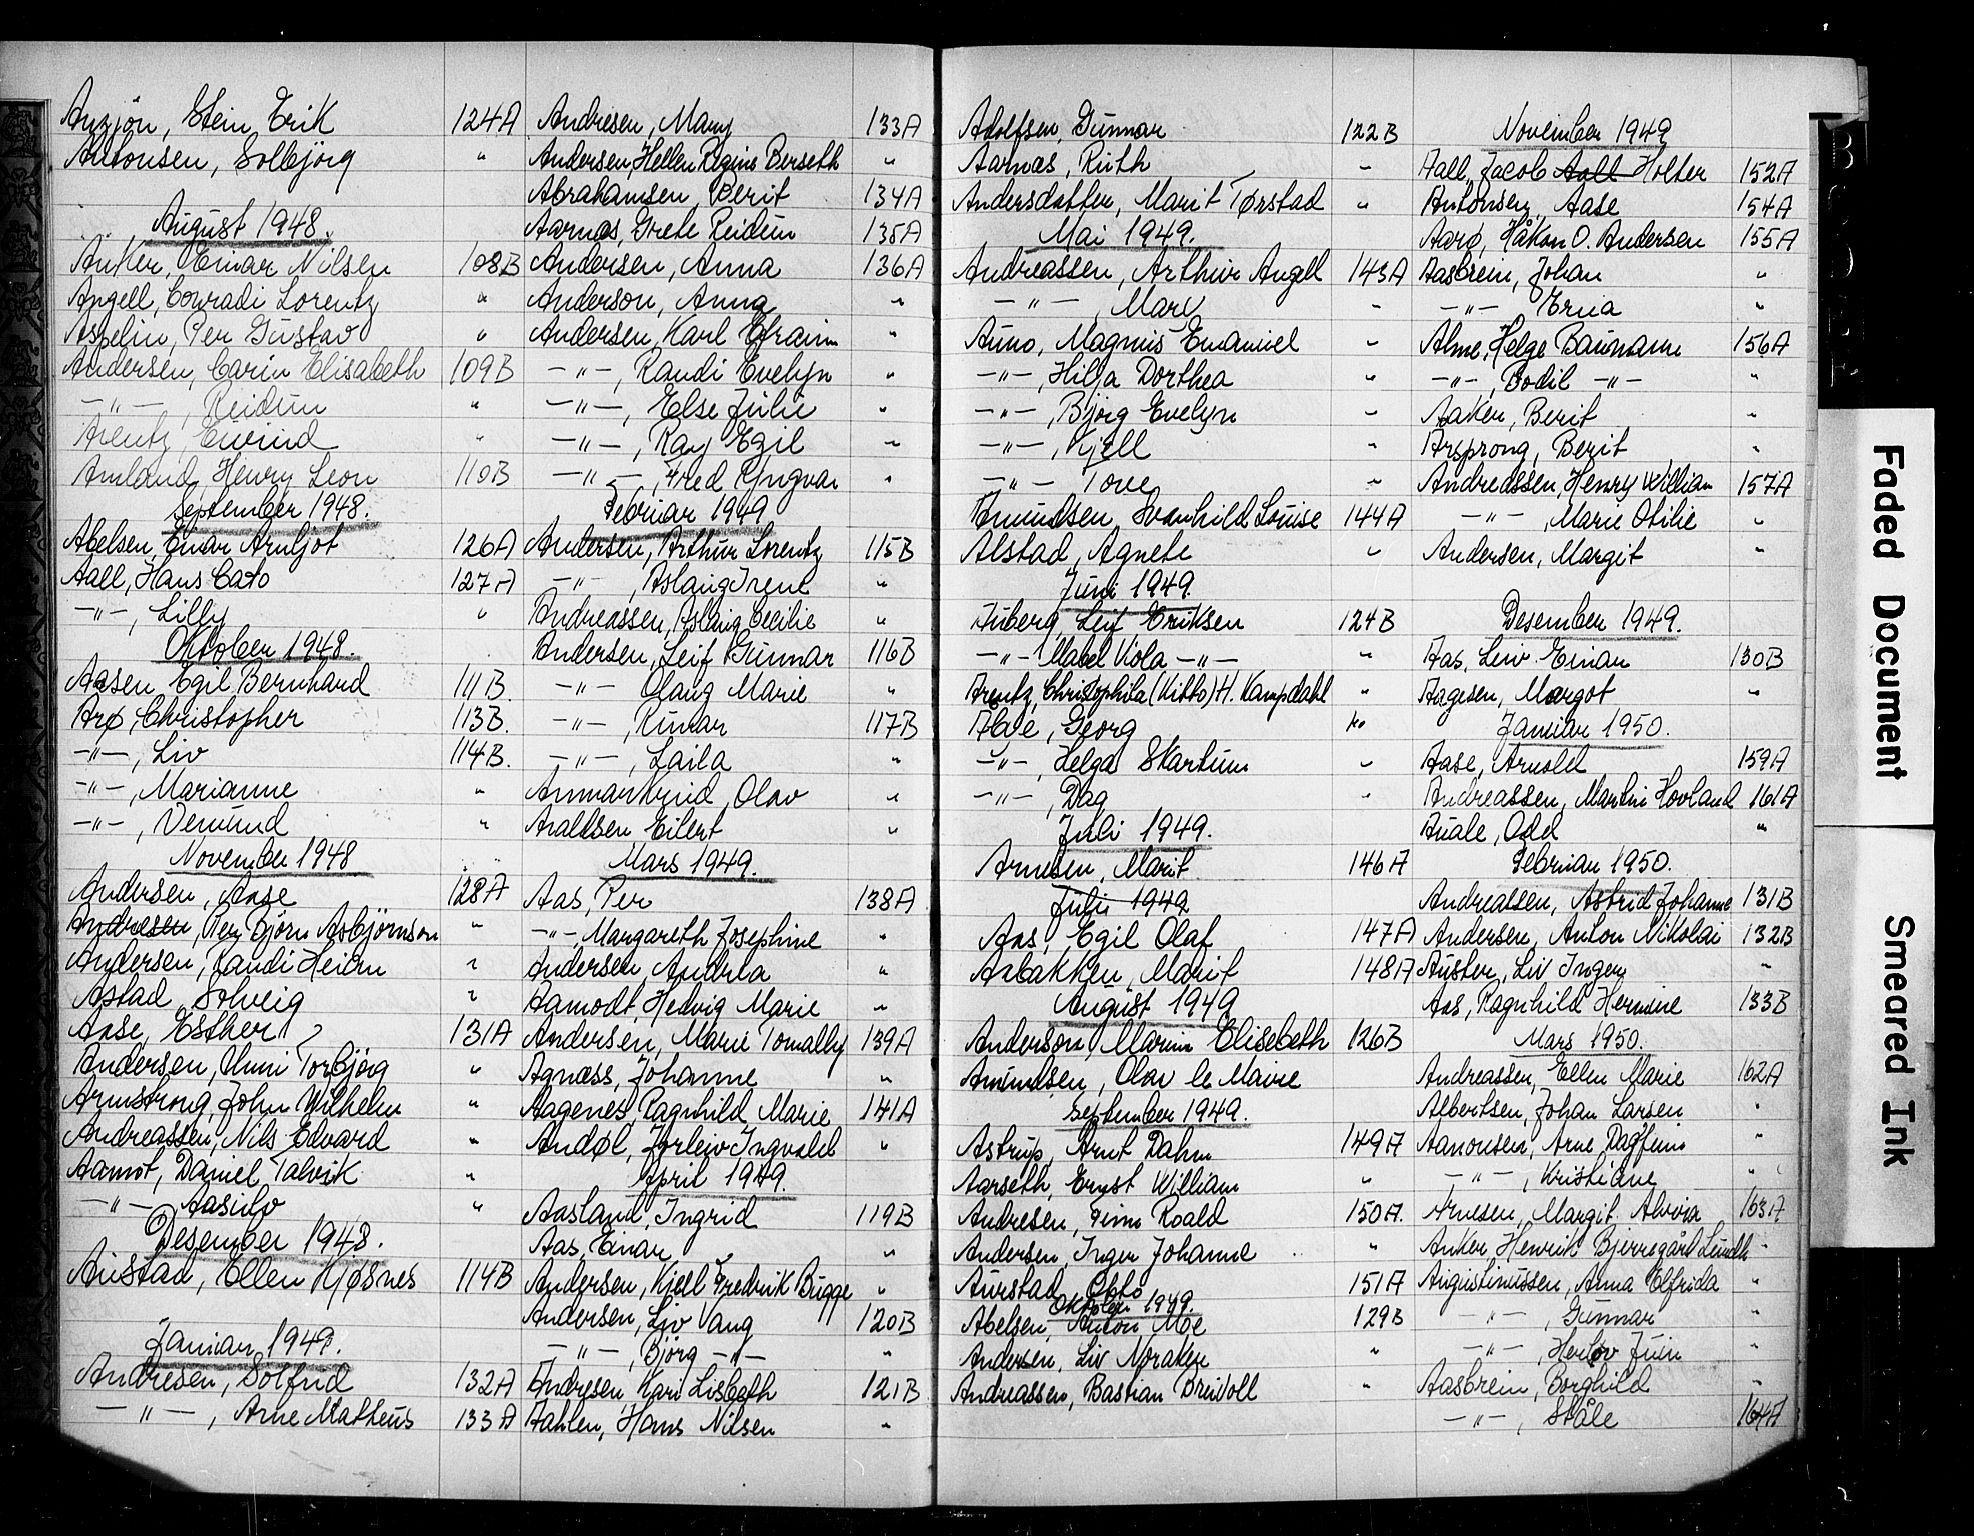 Anzjön, Stein Erik 124A
Antonsen, Solbjörg "
August 1948.
Anker, Einar Nilsen 108B
Angell, Conradi Lorentz "
Aspelin, Per Gustav "
Andersen, Carin Elisabeth 109B
—"—, Reidun "
Arentz, Eivind "
Amland, Henry Leon 110B
September 1948.
Abelsen, Einar Arnljot 126A
Aall, Hans Cato 127A
—"—, Lilly "
Oktober 1948.
Aasen, Egil Bernhard 111B
Arø, Christopher 113B.
—"—, Liv 114B.
—"—, Marianne "
—"—, Vemund "
November 1948
Andersen, Aase 128A
Andresen, Per Björn Asbjörnson "
Andersen, Randi Heiern "
Astad, Solveig "
Aase, Esther 131A
Andersen, Unni Torbjörg "
Armstrong, John Wilhelm "
Andreassen, Nils Edvard "
Aamot, Daniel Talvik "
—"—, Aasulv "
Desember 1948.
Austad, Ellen Kjøsnes 114B
Januar 1949.
Andresen, Solfrid 132A
—"—, Arne Matheus 133A
Andresen, Mary 133A
Andersen, Hellen Regine Berseth "
Abrahamsen, Berit 134A
Aarnæs, Grete Reidun 135A
Andersen, Anna 136A
Anderson, Anna "
Andersen, Karl Efraim "
—"—, Randi Evelyn "
—"—, Else Julie "
—"—, Ray Egil "
—"—, Fred Yngvar "
Februar 1949
Andersen, Arthur Lorentz 115B
—"—, Aslaug Irene "
Andreassen, Aslaug Cecilie "
Andersen, Leif Gunnar 116B
—"— Olaug Marie "
—"—, Runar 117B
—"—, Laila "
Anmarkrud, Olav "
Aralltsen Eilert "
Mars 1949.
Aas, Per 138A
—"—, Margareth Josephine "
Andersen, Andrea "
Aamodt, Hedvig Marie "
Andersen, Marie Tomalty 139A
Agnæss, Johanne "
Aagenes, Ragnhild Marie 141A
Andøl, Jorleiv Ingvald "
April 1949.
Aasland, Ingrid 119B
Aas, Einar "
Andersen, Kjell Fredrik Bugge "
Andersen, Liv Vang 120B
—"—, Björg —"— "
Andresen, Kari Lisbeth 121B
Aahlen, Hans Nilsen "
Adolfsen, Gunnar 122B
Aarnæs, Ruth "
Andersdatter, Marit Tørstad "
Mai 1949.
Andreassen, Arthur Angell 143A
—"—, Mary "
Auno, Magnus Emanuel "
—"—, Hilja Dorthea "
—"—, Björg Evelyn "
—"—, Kjell "
—"— Tove "
Amundsen, Svanhild Louise 144A
Alstad, Agnete "
Juni 1949.
Auberg, Leif Eriksen 124B
—"— Mabel Viola —"— "
Arentz, Christophila (Kitto) H. Kampdahl "
Alve, Georg "
—"—, Helga Skartum "
—"—, Dag "
Juli 1949.
Arnesen, Marit 146A
Juli 1949
Aas, Egil Olaf 147A
Aabakken, Marit 148A
August 1949
Anderson, Marina Elisebeth 126B
Amundsen, Olav le Maire "
September 1949.
Astrup, Arnt Dahm 149A
Aarseth, Ernst William "
Andresen, Finn Roald 150A.
Andersen, Inger Johanne "
Aurstad, Otto 151A
Oktober 1949.
Abelsen, Anton Moe 129B
Andersen, Liv Noraker "
Andreassen, Bastian Breivoll "
November 1949
Aall, Jacob Aall Holter 152A
Antonsen, Aase 154A
Aarø, Håkon O. Andersen 155A
Aasbrein, Johan "
—"— Erna "
Alme, Helge Baumann 156A
—"—, Bodil —"— "
Aaker, Berit "
Arsprong, Berit "
Andreassen, Henry William 157A
—"—, Marie Otilie "
Andersen, Margit "
Desember 1949.
Aas, Leiv Einar 130B
Aagesen, Margot "
Januar 1950.
Aase, Arnold 159A
Andreassen, Martin Hovland 161A
Auale, Odd "
Februar 1950.
Andreassen, Astrid Johanne 131B
Andersen, Anton Nikolai 132B
Auster, Liv Inger "
Aas, Ragnhild Hermine 133B
Mars 1950.
Andreassen, Ellen Marie 162A
Albertsen, Johan Larsen "
Aanonsen, Arne Dagfinn "
—"—, Kristiane "
Arnesen, Margit Alvia 163A
Anker, Henrik Bjerregård Lundh "
Augustinussen, Anna Elfrida "
—"—, Gunnar "
—"—, Herlov Juin "
Aasbrein, Borghild "
—"—, Ståle 164A
B
C
D
E
F
Faded Document
Smeared Ink